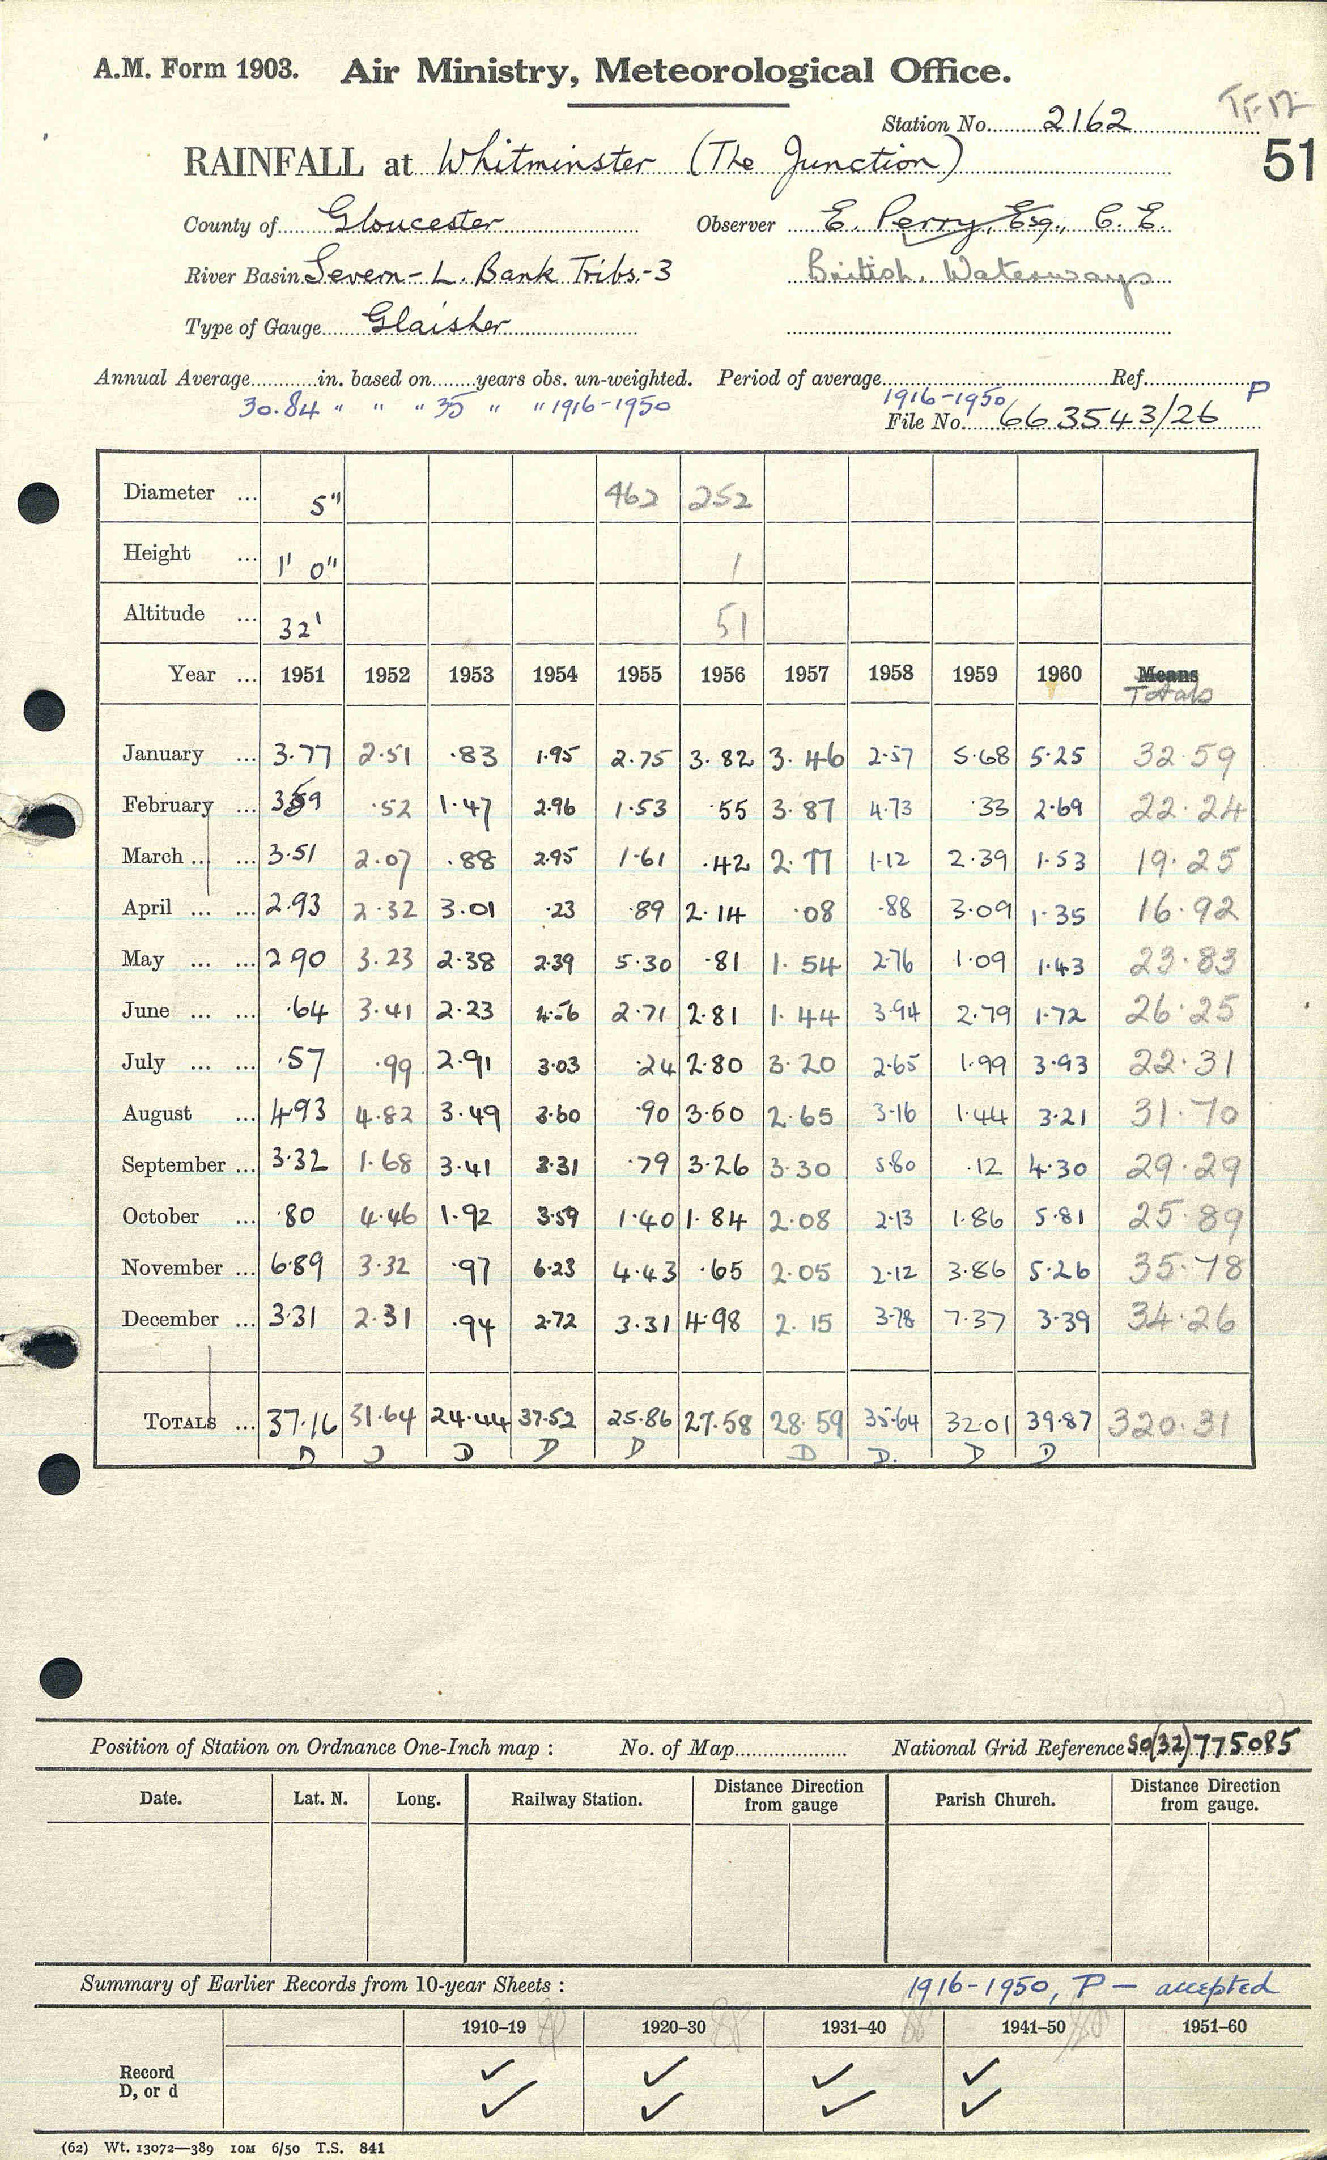 A.M. Form 1903. Air Ministry, Meteorological Office.
TF 12
Station No. 2162
51
RAINFALL at Whitminster (The Junction)
County of Gloucester Observer E. Perry, Esq., C.E.
River Basin Severn - L. Bank Tribs.-3 British Waterways
Type of Gauge Glaisher
Annual Average in. based on years obs. un-weighted. Period of average Ref. P
30.84 " " " 35 " " 1916-1950 1916-1950
File No. 663543/26
Diameter ... 5" 462 252
Height ... 1' 0" 1
Altitude ... 32' 51
Year ... 1951 1952 1953 1954 1955 1956 1957 1958 1959 1960 Means
Totals
January ... 3.77 2.51 .83 1.95 2.75 3.82 3.46 2.57 5.68 5.25 32.59
February ... 3.59 .52 1.47 2.96 1.53 .55 3.87 4.73 .33 2.69 22.24
March ... ... 3.51 2.07 .88 2.95 1.61 .42 2.77 1.12 2.39 1.53 19.25
April ... ... 2.93 2.32 3.01 .23 .89 2.14 .08 .88 3.09 1.35 16.92
May ... ... 2.90 3.23 2.38 2.39 5.30 .81 1.54 2.76 1.09 1.43 23.83
June ... ... .64 3.41 2.23 4.56 2.71 2.81 1.44 3.94 2.79 1.72 26.25
July ... ... .57 .99 2.91 3.03 .24 2.80 3.20 2.65 1.99 3.93 22.31
August ... 4.93 4.82 3.49 3.60 .90 3.50 2.65 3.16 1.44 3.21 31.70
September ... 3.32 1.68 3.41 3.31 .79 3.26 3.30 5.80 .12 4.30 29.29
October ... .80 4.46 1.92 3.59 1.40 1.84 2.08 2.13 1.86 5.81 25.89
November ... 6.89 3.32 .97 6.23 4.43 .65 2.05 2.12 3.86 5.26 35.78
December ... 3.31 2.31 .94 2.72 3.31 4.98 2.15 3.78 7.37 3.39 34.26
TOTALS ... 37.16 31.64 24.44 37.52 25.86 27.58 28.59 35.64 32.01 39.87 320.31
D D D D D D D. D D
Position of Station on Ordnance One-Inch map : No. of Map National Grid Reference SO(32)775085
Date. Lat. N. Long. Railway Station. Distance Direction from gauge Parish Church. Distance Direction from gauge.
Summary of Earlier Records from 10-year Sheets : 1916-1950, P - accepted
1910–19 1920–30 1931–40 1941–50 1951–60
Record ✓ ✓ ✓ ✓
D, or d ✓ ✓ ✓ ✓
(62) Wt. 13072—389 10M 6/50 T.S. 841